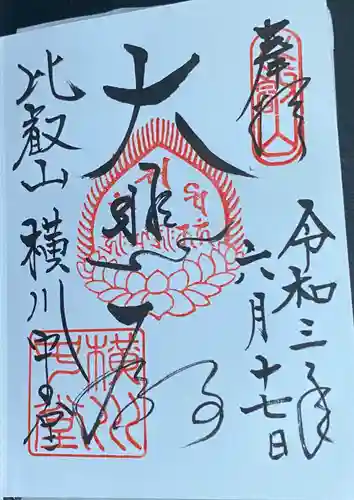 奉拝
令和三年
六月十七日
大悲殿
比叡山 横川中堂
横川中堂